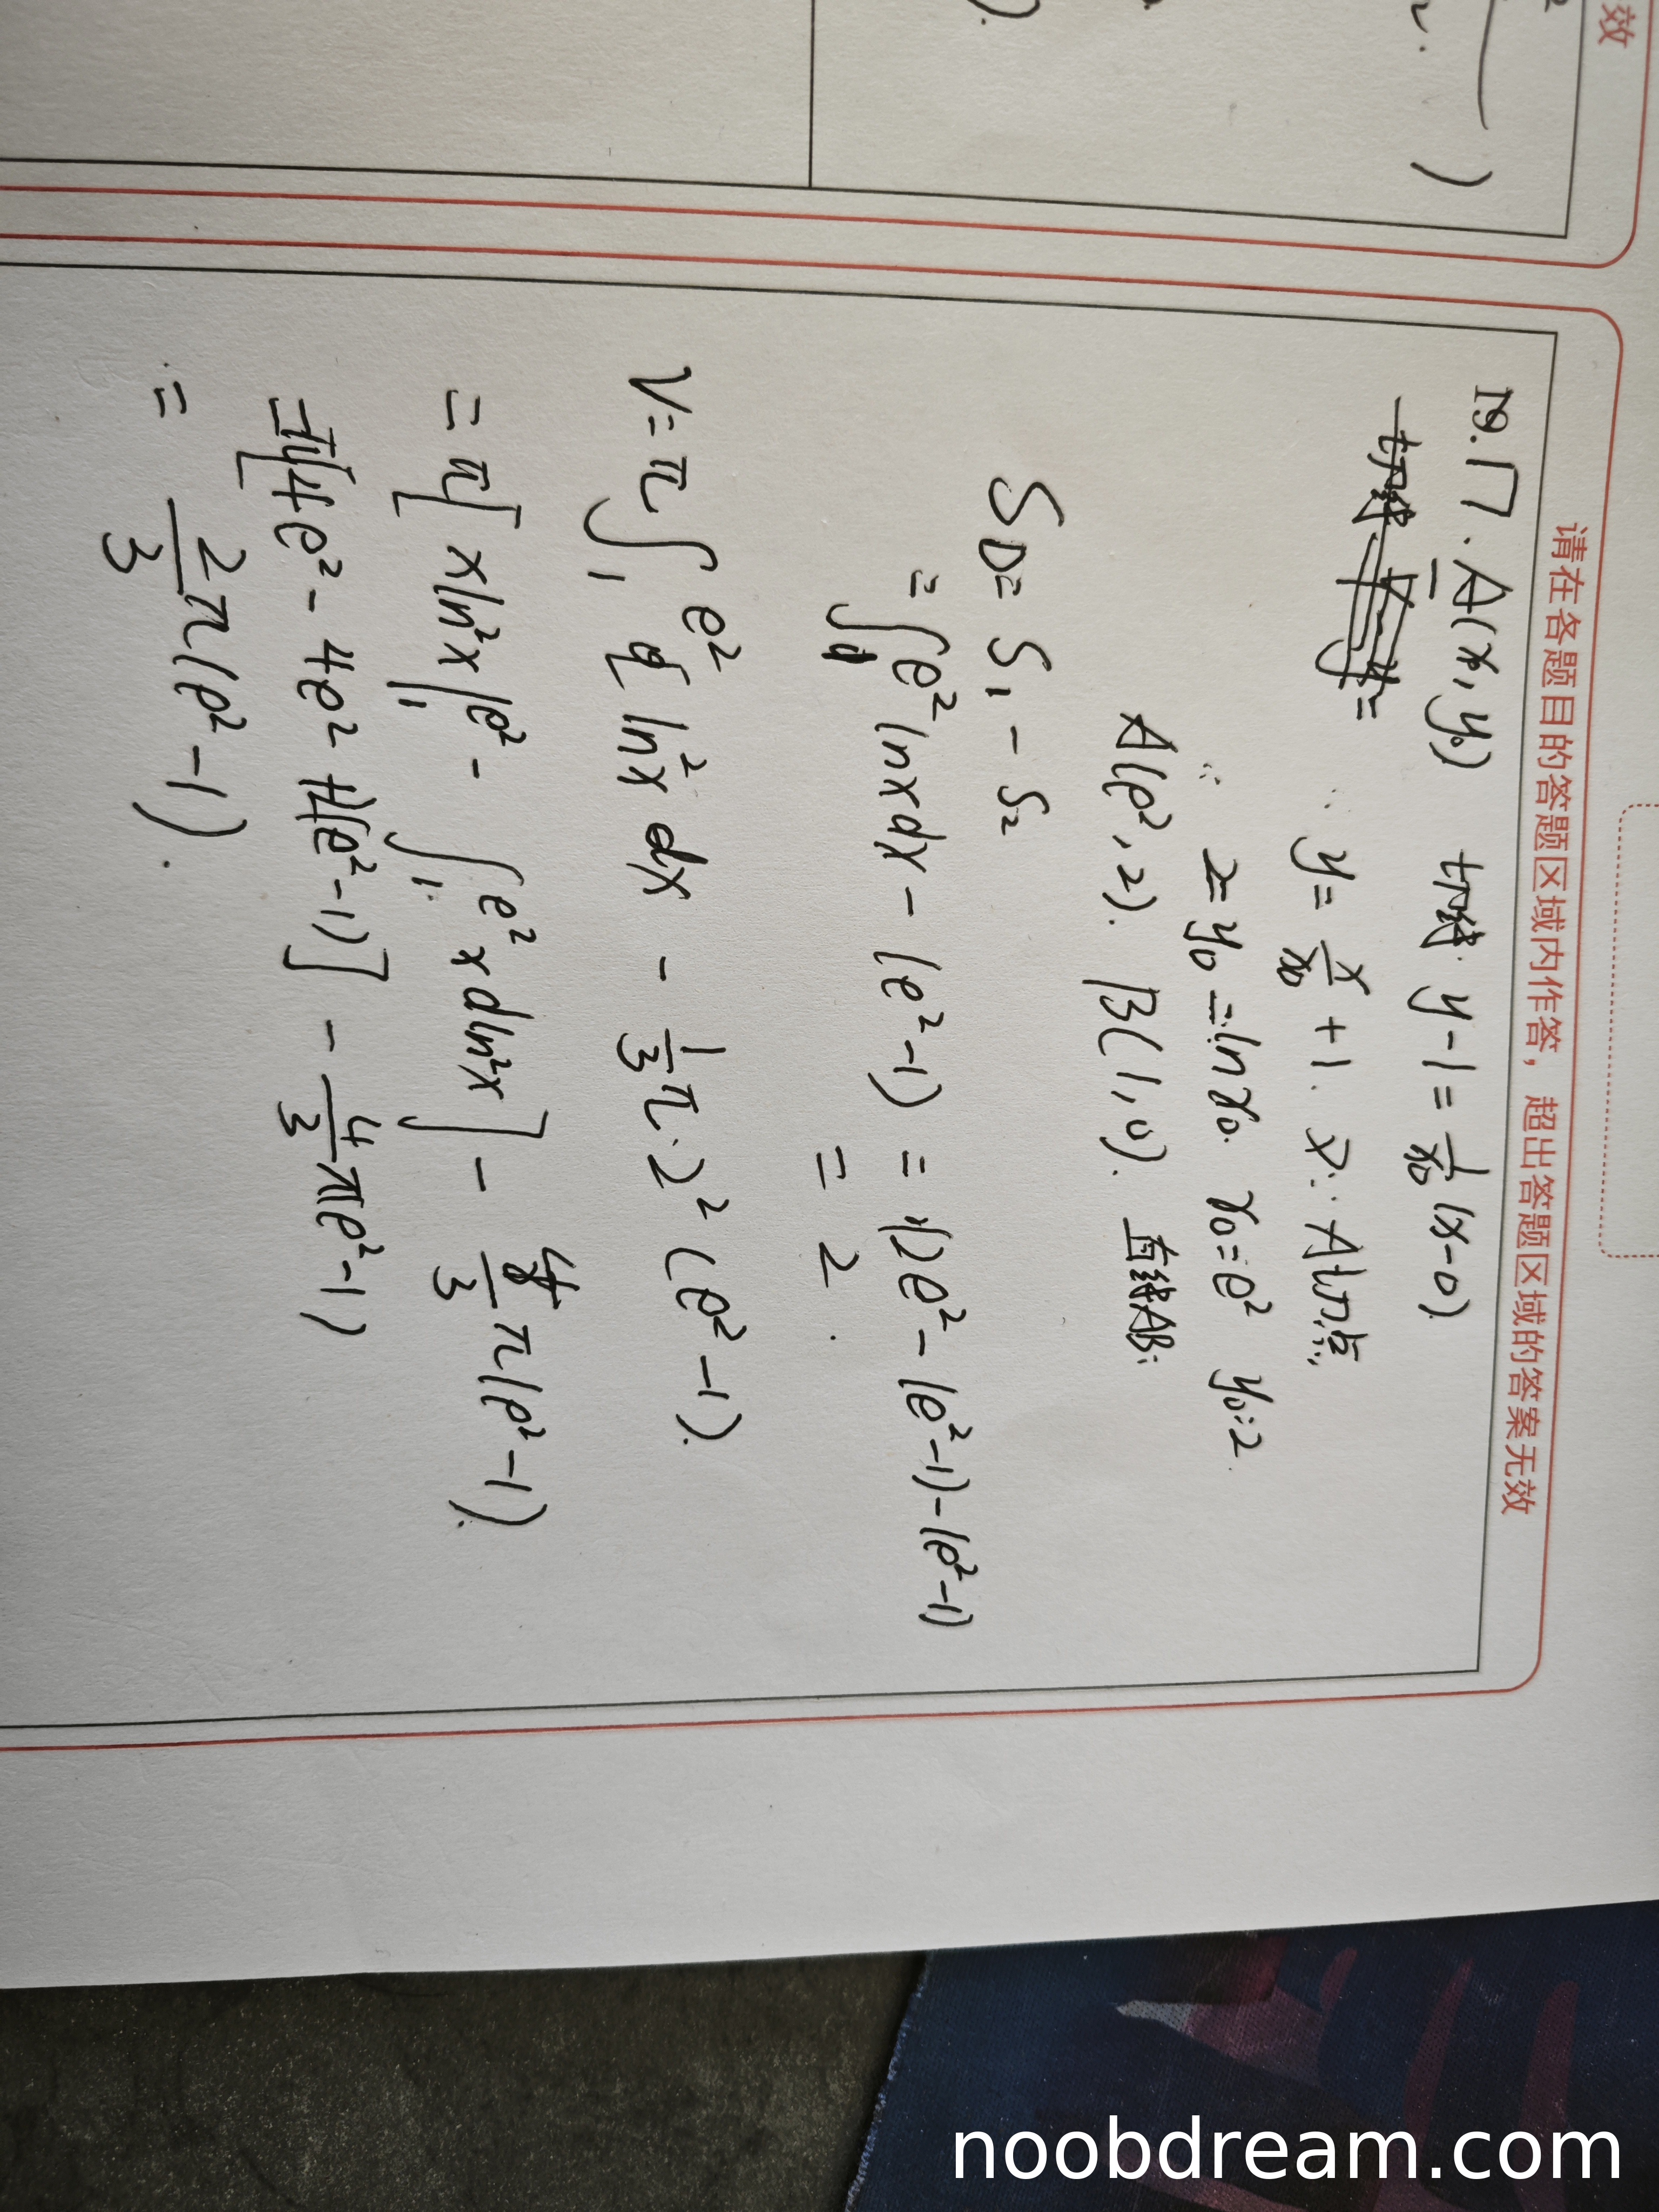 效
请在各题目的答题区域内作答，超出答题区域的答案无效
19. 17. A(x₀, y₀) 切线: y-1=1/x₀(x-0)
切线 y=
∴ y= x/x₀ +1. 又∵A切点,
∴ 2=y₀=lnx₀. x₀=e² y₀=2.
A(e², 2). B(1, 0). 直线AB:
S_D= S₁ - S₂
=∫₁^e² lnxdx - (e²-1) = 2e²-(e²-1)-(e²-1)
= 2.
V=π∫₁^e² ln²x dx - 1/3 π·2²(e²-1).
=π[xln²x|₁^e² - ∫₁^e² xdln²x] - 4/3 π(e²-1).
=π[4e²-4e²+2(e²-1)] - 4/3 πe²-1)
= 2/3 π(e²-1).
noobdream.com